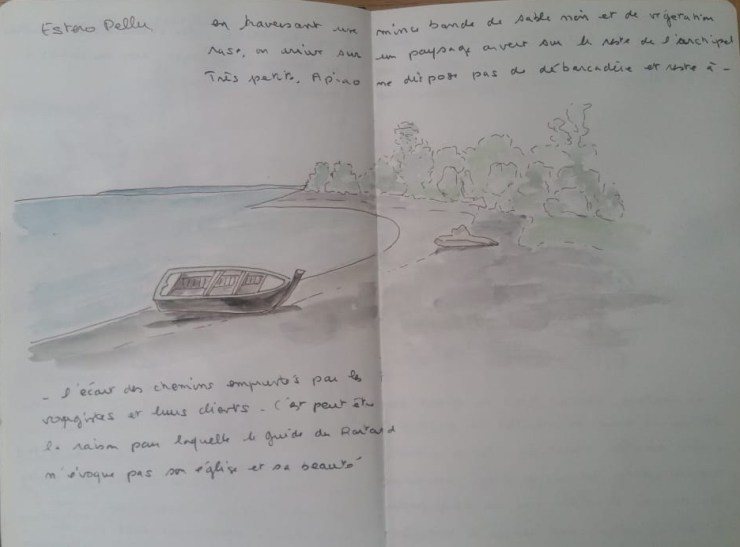 Estero Pellu
en traversant une mince bande de sable noir et de végétation
rase, on arrive sur un paysage ouvert sur le reste de l'archipel
Très petite, Apiao ne dispose pas de débarcadère et reste à -
- l'écart des chemins empruntés par les
voyagistes et leurs clients. C'est peut être
la raison pour laquelle le guide du Routard
n'évoque pas son église et sa beauté